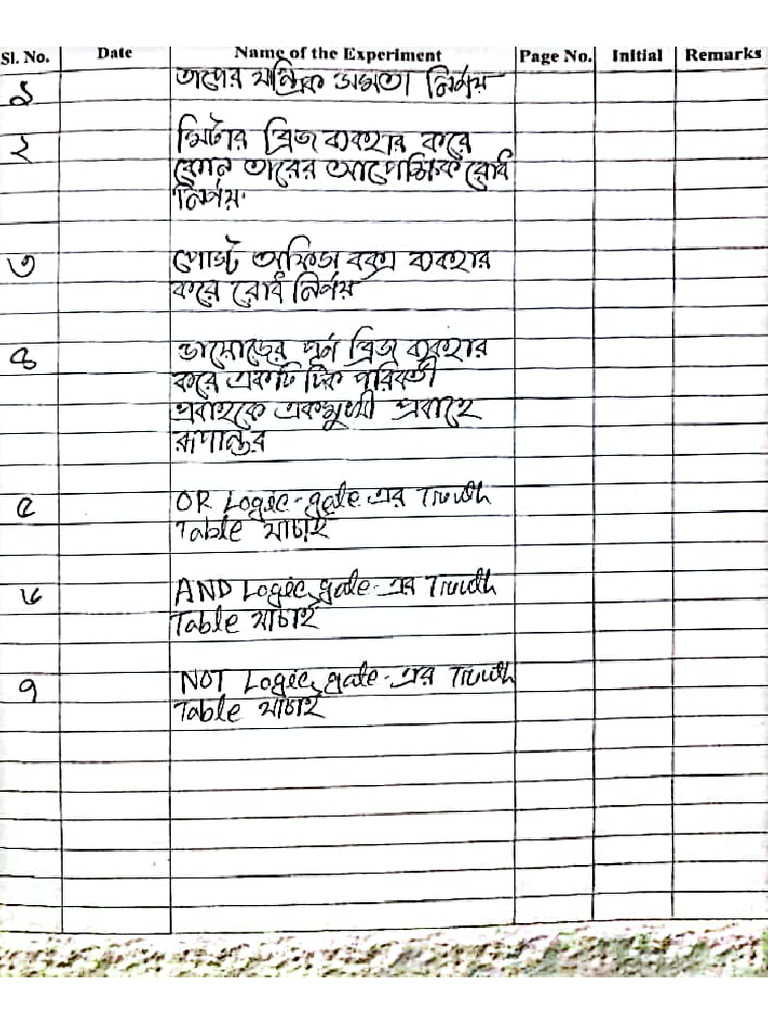 Sl. No. Date Name of the Experiment Page No. Initial Remarks
১ তাপের যান্ত্রিক সমতা নির্ণয়
২ মিটার ব্রিজ ব্যবহার করে
কোন তারের আপেক্ষিক রোধ
নির্ণয়
৩ পোস্ট অফিস বক্স ব্যবহার
করে রোধ নির্ণয়
৪ ডায়োডের পূর্ণ ব্রিজ ব্যবহার
করে একটি দিক পরিবর্তী
প্রবাহকে একমুখী প্রবাহে
রূপান্তর
৫ OR Logic-gate এর Truth
Table যাচাই
৬ AND Logic gate-এর Truth
Table যাচাই
৭ NOT Logic gate-এর Truth
Table যাচাই